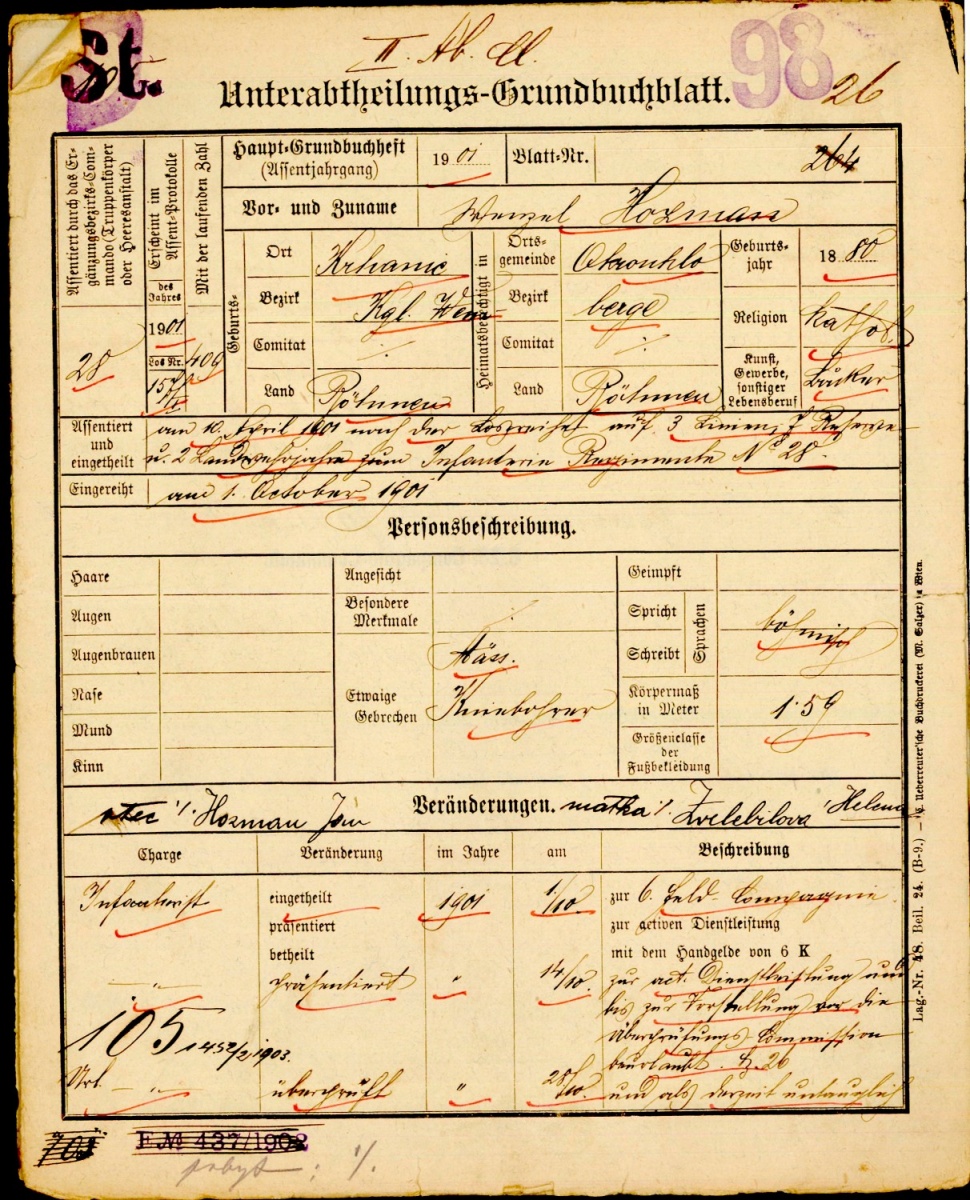 St.
II. Ab. 
98
26
Unterabtheilungs-Grundbuchblatt.
Assentiert durch das Er-
gänzungsbezirks-Com-
mando (Truppenkörper
oder Heeresanstalt)
28
Erscheint im
Assent-Protokolle
des
Jahres
1901
Los Nr.
Mit der laufenden Zahl
409
Haupt-Grundbuchheft
(Assentjahrgang)
1901
Blatt-Nr.
264
Vor- und Zuname
Wenzel Hozman
Geburts-
Ort
Krhanic
Bezirk
Kgl. Wein-
Comitat
./.
Land
Böhmen
Heimatsberechtigt in
Orts-
gemeinde
Okrouhlo
Bezirk
berge
Comitat
./.
Land
Böhmen
Geburts-
jahr
1880
Religion
kathol.
Kunst,
Gewerbe,
sonstiger
Lebensberuf
Bäcker
Assentiert
und
eingetheilt
am 10. April 1901 nach der Losreihe auf 3 Linien, 7 Reserve
u. 2 Landwehrjahre zum Infanterie Regimente No 28.
Eingereiht
am 1. October 1901
Personsbeschreibung.
Haare
Augen
Augenbrauen
Nase
Mund
Kinn
Angesicht
Besondere
Merkmale
Etwaige
Gebrechen
Mäss.
Kniebohrer
Geimpft
Spricht
Schreibt
Sprachen
böhmisch
Körpermaß
in Meter
1·59
Größenclasse
der
Fußbekleidung
otec ./. Hozman Jan
Veränderungen.
matka ./. Zvelebilova Helena
Charge
Veränderung
im Jahre
am
Beschreibung
Infanterist
eingetheilt
1901
1/10
zur 6. Feld-Compagnie
präsentiert
zur activen Dienstleistung
betheilt
mit dem Handgelde von 6 K
präsentiert
"
14/10.
zur act. Dienstleistung und
bis zur Vorstellung vor die
Überprüfungs Commission
beurlaubt.
105
1452/2 1903.
Url.
"
überprüft
"
28/10.
und als derzeit untauglich
701.
E № 437/1902
pobyt : ./.
Lag.-Nr. 48. Beil. 24. (B-9.) — C. Ueberreuter'sche Buchdruckerei (M. Salzer) in Wien.